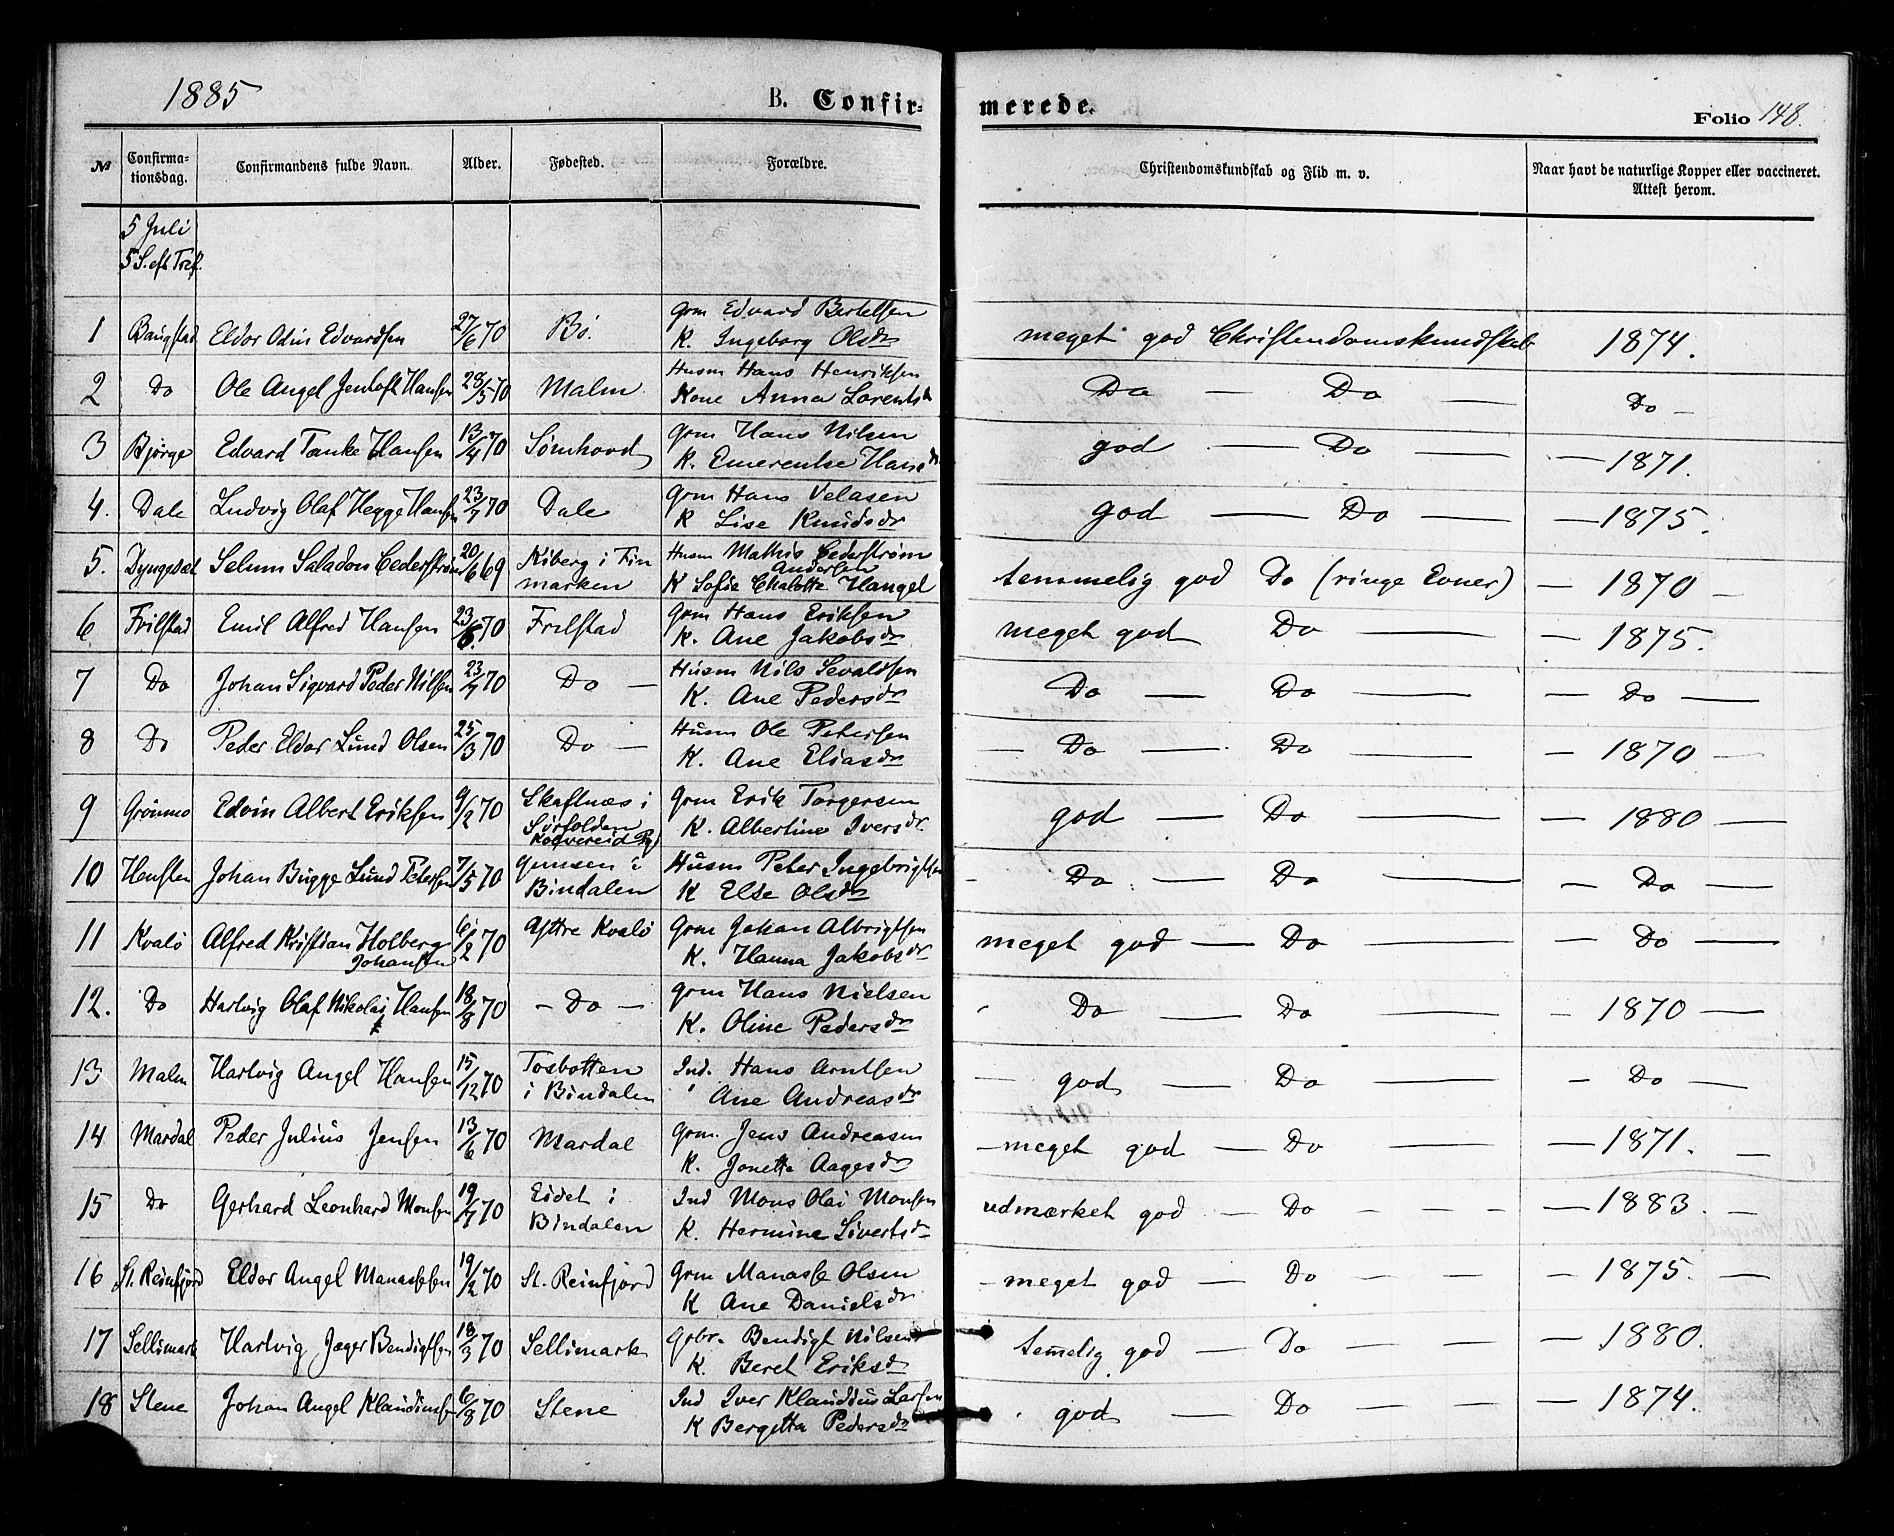 1885 B. Confir=
merede. Folio 148.
No Confirma=tionsdag. Confirmandens fulde Navn. Alder. Fødested. Forældre. Christendomskundskab og Flid m. v. Naar havt de naturlige Kopper eller vaccineret. Attest herom.
5 Juli
5 S. eft Tref.
1 Bangstad Eldor Odin Edvardsen 27/6 70 Bö. Grm Edvard Bertelsen
K. Ingeborg Olsdr meget god Christendomskundskab 1874.
2 Do Ole Angel Jentoft Hansen 28/5 70 Malm Husm Hans Henriksen
Kone Anna Lorentsdr Do — Do — Do —
3 Bjørge Edvard Tanke Hansen 13/4 70 Sømhovd Grm Hans Nilsen
K. Emerentse Hansdr god — Do — — 1871.
4. Dale Ludvig Olaf Hegge Hansen 23/7 70 Dale Grm Hans Velasen
K Lise Knudsdr god — Do — — 1875.
5. Dyngesæt Selum Saladon Cederstrøm 20/6 69 Kiberg i Fin
marken Husm Mathis Cederstrøm
Andersen
K Sofie Chalotte Hangel temmelig god Do (ringe Evner) — 1870 —
6 Frilstad Emil Alfred Hansen 23/6. 70 Frelstad Grm Hans Eriksen
K. Ane Jakobsdr meget god Do — — 1875.
7 Do Johan Sigvard Peder Nilsen 23/7 70 Do — Husm Nils Sevaldsen
K. Ane Pedersdr Do — Do — — Do —
8 Do Peder Eldor Lund Olsen 25/3 70 Do — Husm Ole Petersen
K. Ane Eliasdr — Do — Do — — 1870 —
9 Grönmo Edvin Albert Eriksen 9/2 70 Skaftnæs i
Sørfolden
Kolvereid Pg) Grm Erik Torgersen
K. Albertine Iversdr. god — Do — — 1880 —
10 Henften Johan Bugge Lund Petersen 7/5 70 Gumsen i
Bindalen Husm Peter Ingebrigtsen
K Else Olsdr - Do — Do — — Do —
11 Kvalö Alfred Kristian Holberg
Johansen 6/2 70 Yttre Kvalö Grm Johan Albrigtsen
K. Hanna Jakobsdr meget god — Do — — Do —
12. Do Hartvig Olaf Nikolai Hansen 18/8 70 — Do — Grm Hans Nielsen
K. Oline Pedersdr Do — Do — — 1870 —
13 Malm Hartvig Angel Hansen 15/12 70 Tosbotten
i Bindalen Ind. Hans Arntsen
Ane Andreasdr — god — Do — — Do —
14 Mardal Peder Julius Jensen 13/6 70 Mardal Grm. Jens Andreasen
K. Jonetta Aagesdr — meget god — Do — — 1871. —
15 Do Gerhard Leonhard Monsen 19/7 70 Eidet i
Bindalen Ind Mons Olai Monsen
K. Hermine Sivertsdr udmærket god — Do - - - — 1883. —
16 St. Reinfjord Eldor Angel Manassesen 19/2 70 St. Reinfjord Grm Manasse Olsen
K Ane Danielsdr — meget god — Do — — — 1875. —
17 Sellimark Hartvig Jæger Bendigtsen 18/3 70 Sellimark Gbr. Bendigt Nilsen
K. Beret Eriksdr temelig god — Do — — — 1880.
18 Stene Johan Angel Klaudiusen 6/8 70 Stene Ind Iver Klaudius Larsen
K Bergetta Pedersdr god — Do — — — 1874.